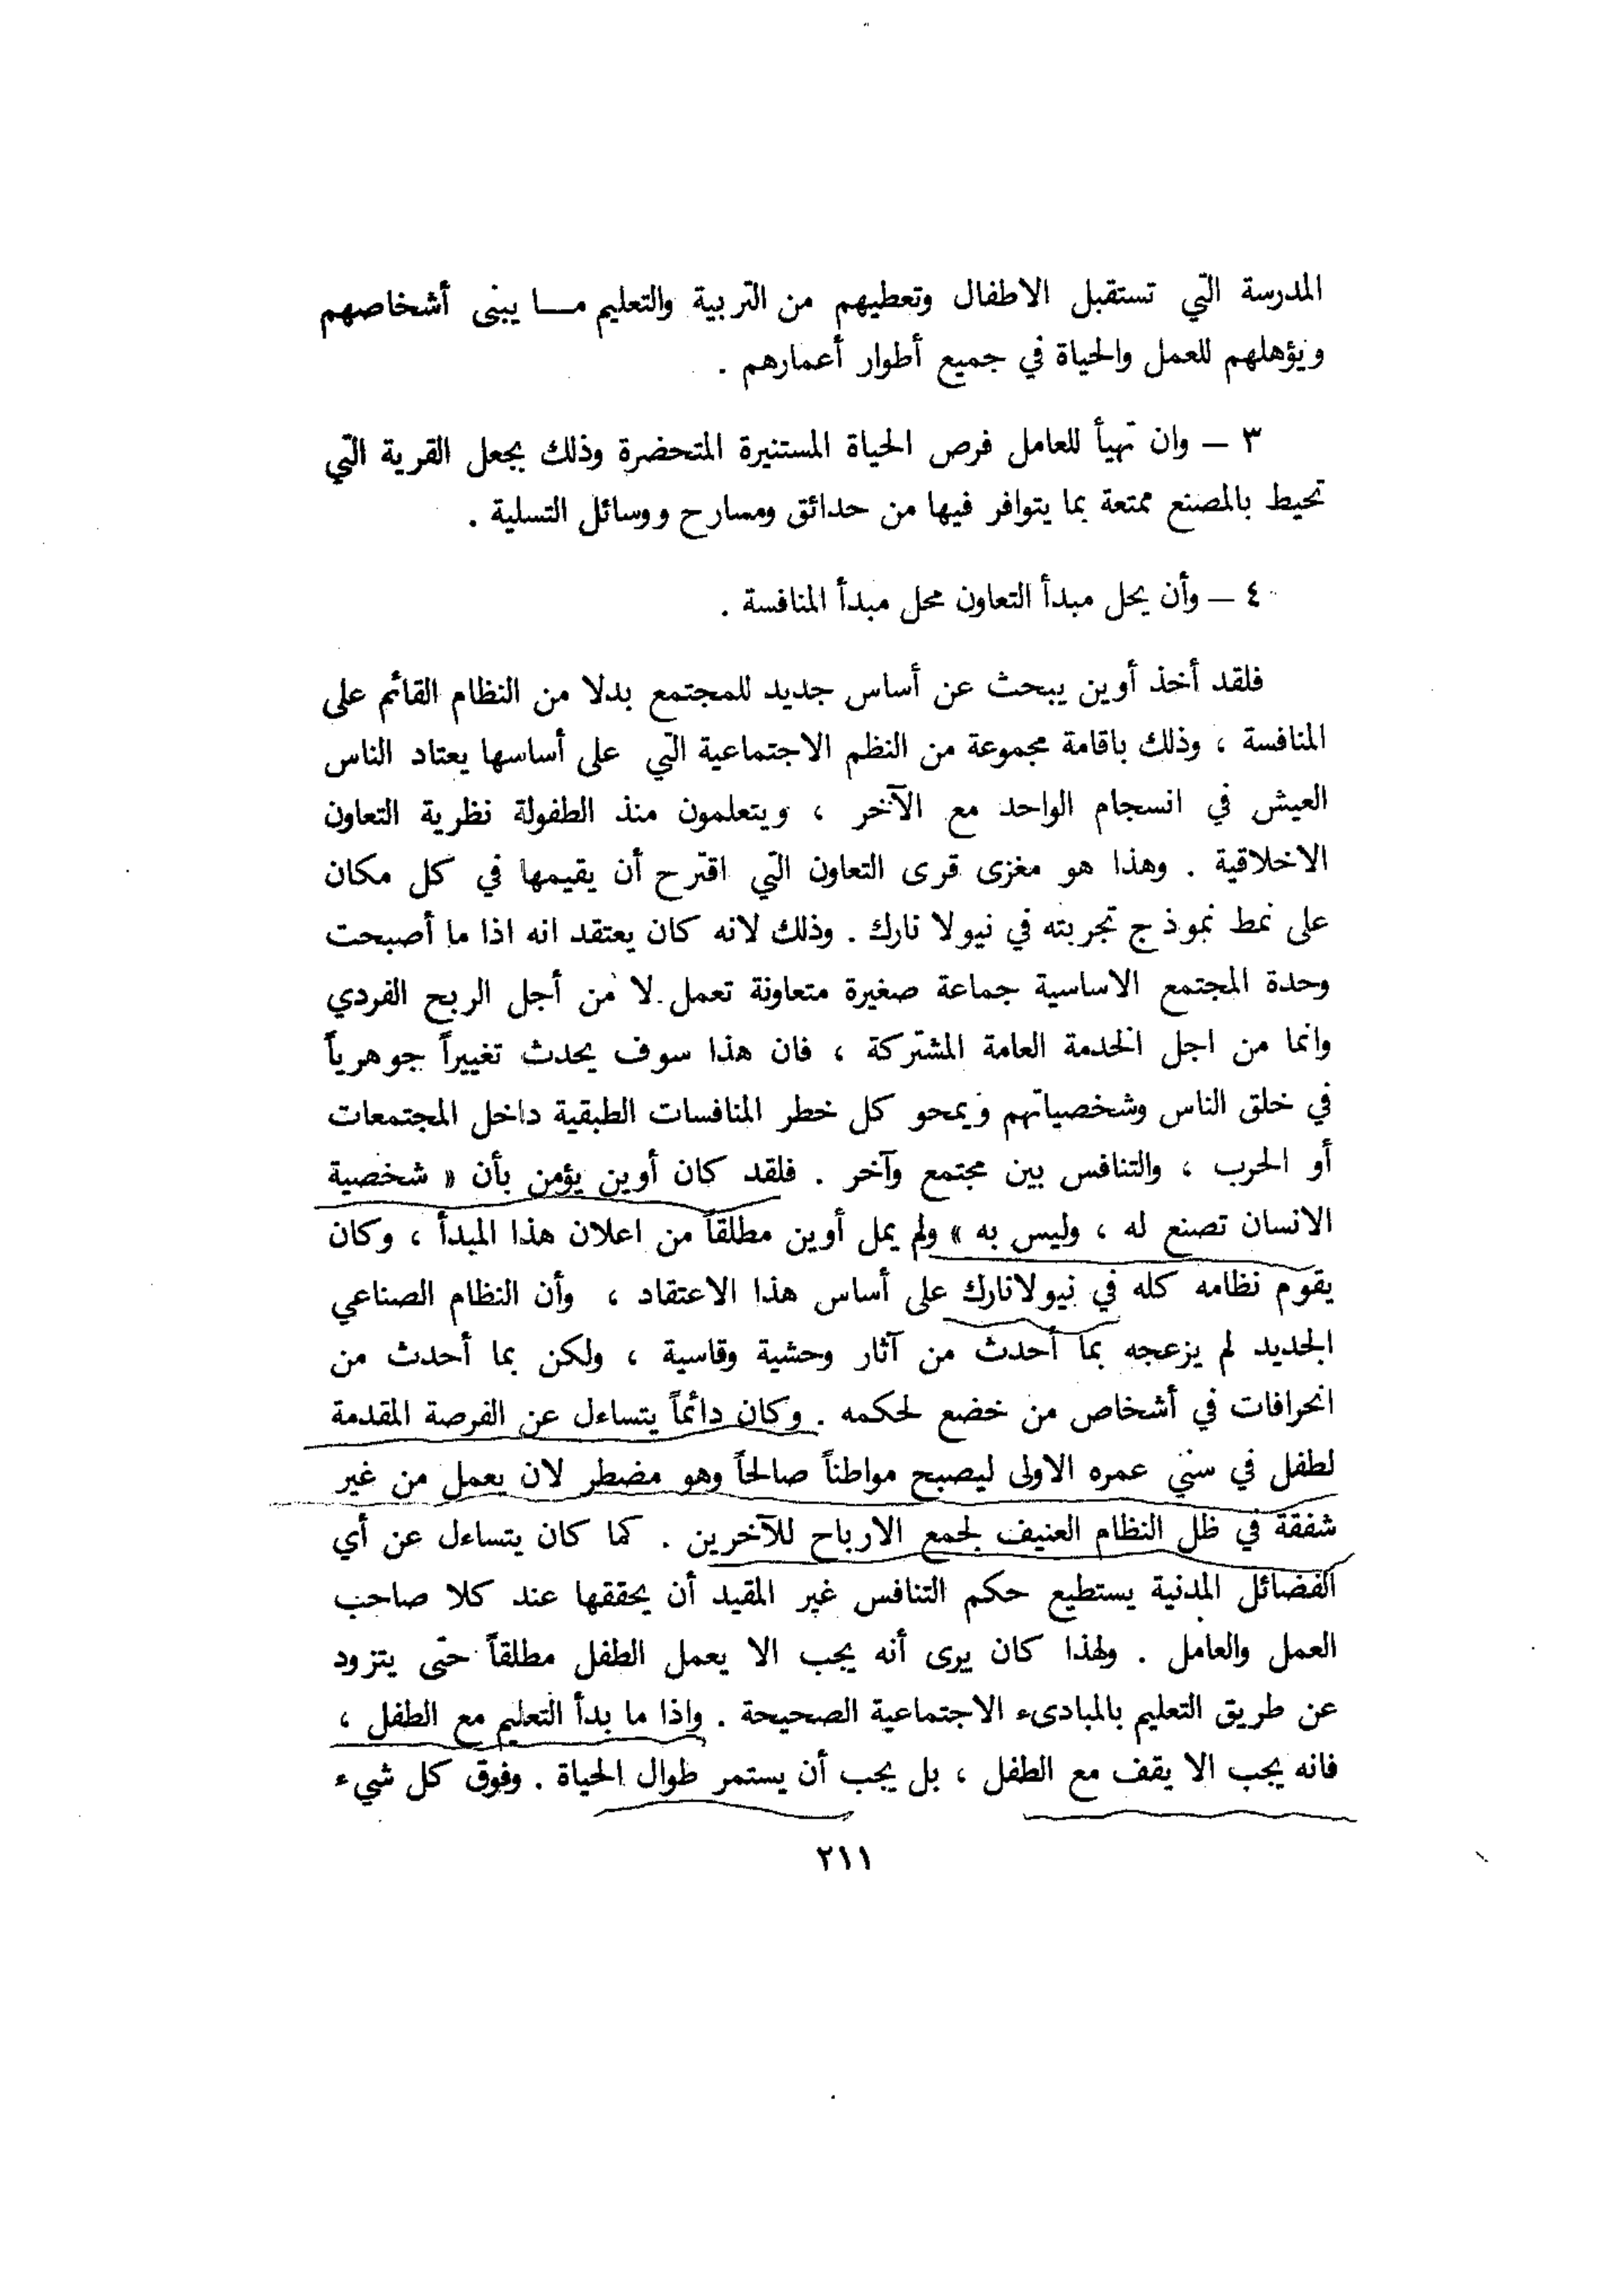 المدرسة التي تستقبل الاطفال وتعطيهم من التربية والتعليم مـــا يبنى أشخاصهم
ويؤهلهم للعمل والحياة في جميع أطوار أعمارهم .
٣ – وان تهيأ للعامل فرص الحياة المستنيرة المتحضرة وذلك بجعل القرية التي
تحيط بالمصنع ممتعة بما يتوافر فيها من حدائق ومسارح ووسائل التسلية .
٤ – وأن يحل مبدأ التعاون محل مبدأ المنافسة .
فلقد أخذ أوين يبحث عن أساس جديد للمجتمع بدلا من النظام القائم على
المنافسة ، وذلك باقامة مجموعة من النظم الاجتماعية التي على أساسها يعتاد الناس
العيش في انسجام الواحد مع الآخر ، ويتعلمون منذ الطفولة نظرية التعاون
الاخلاقية . وهذا هو مغزى قرى التعاون التي اقترح أن يقيمها في كل مكان
على نمط نموذج تجربته في نيولا نارك . وذلك لانه كان يعتقد انه اذا ما أصبحت
وحدة المجتمع الاساسية جماعة صغيرة متعاونة تعمل لا من أجل الربح الفردي
وانما من اجل الخدمة العامة المشتركة ، فان هذا سوف يحدث تغييراً جوهرياً
في خلق الناس وشخصياتهم ويمحو كل خطر المنافسات الطبقية داخل المجتمعات
أو الحرب ، والتنافس بين مجتمع وآخر . فلقد كان أوين يؤمن بأن « شخصية
الانسان تصنع له ، وليس به » ولم يمل أوين مطلقاً من اعلان هذا المبدأ ، وكان
يقوم نظامه كله في نيولانارك على أساس هذا الاعتقاد ، وأن النظام الصناعي
الجديد لم يزعجه بما أحدث من آثار وحشية وقاسية ، ولكن بما أحدث من
انحرافات في أشخاص من خضع لحكمه . وكان دائماً يتساءل عن الفرصة المقدمة
لطفل في سني عمره الاولى ليصبح مواطناً صالحاً وهو مضطر لان يعمل من غير
شفقة في ظل النظام العنيف لجمع الارباح للآخرين . كما كان يتساءل عن أي
الفضائل المدنية يستطيع حكم التنافس غير المقيد أن يحققها عند كلا صاحب
العمل والعامل . ولهذا كان يرى أنه يجب الا يعمل الطفل مطلقاً حتى يتزود
عن طريق التعليم بالمبادىء الاجتماعية الصحيحة . واذا ما بدأ التعليم مع الطفل ،
فانه يجب الا يقف مع الطفل ، بل يجب أن يستمر طوال الحياة . وفوق كل شيء
٢١١